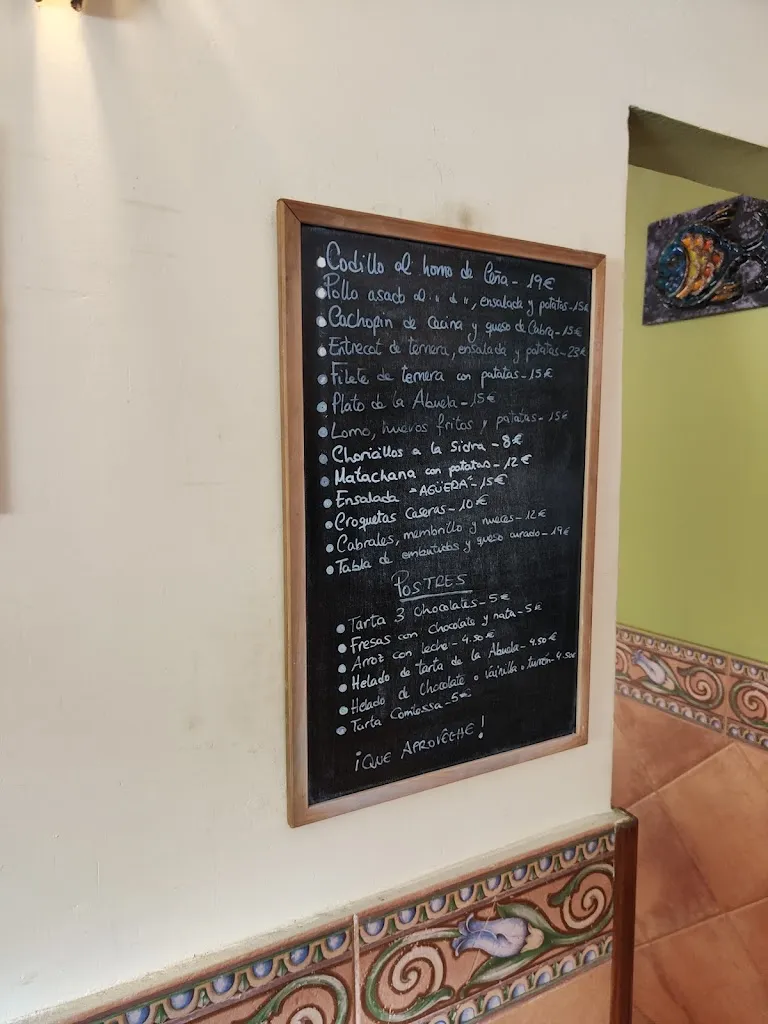 Codillo al horno de leña - 19€
Pollo asado al " de ", ensalada y patatas - 15€
Cachopin de Cecina y queso de Cabra - 15€
Entrecot de ternera, ensalada y patatas - 23€
Filete de ternera con patatas - 15€
Plato de la Abuela - 15€
Lomo, huevos fritos y patatas - 15€
Choricillos a la Sidra - 8€
Matachana con patatas - 12€
Ensalada "AGÜERA" - 15€
Croquetas Caseras - 10€
Cabrales, membrillo y nueces - 12€
Tabla de embutidos y queso curado - 19€
POSTRES
Tarta 3 Chocolates - 5€
Fresas con Chocolate y nata - 5€
Arroz con leche - 4.50€
Helado de tarta de la Abuela - 4.50€
Helado de Chocolate o Vainilla o turrón - 4.50€
Tarta Comtessa - 5€
¡QUE APROVECHE!